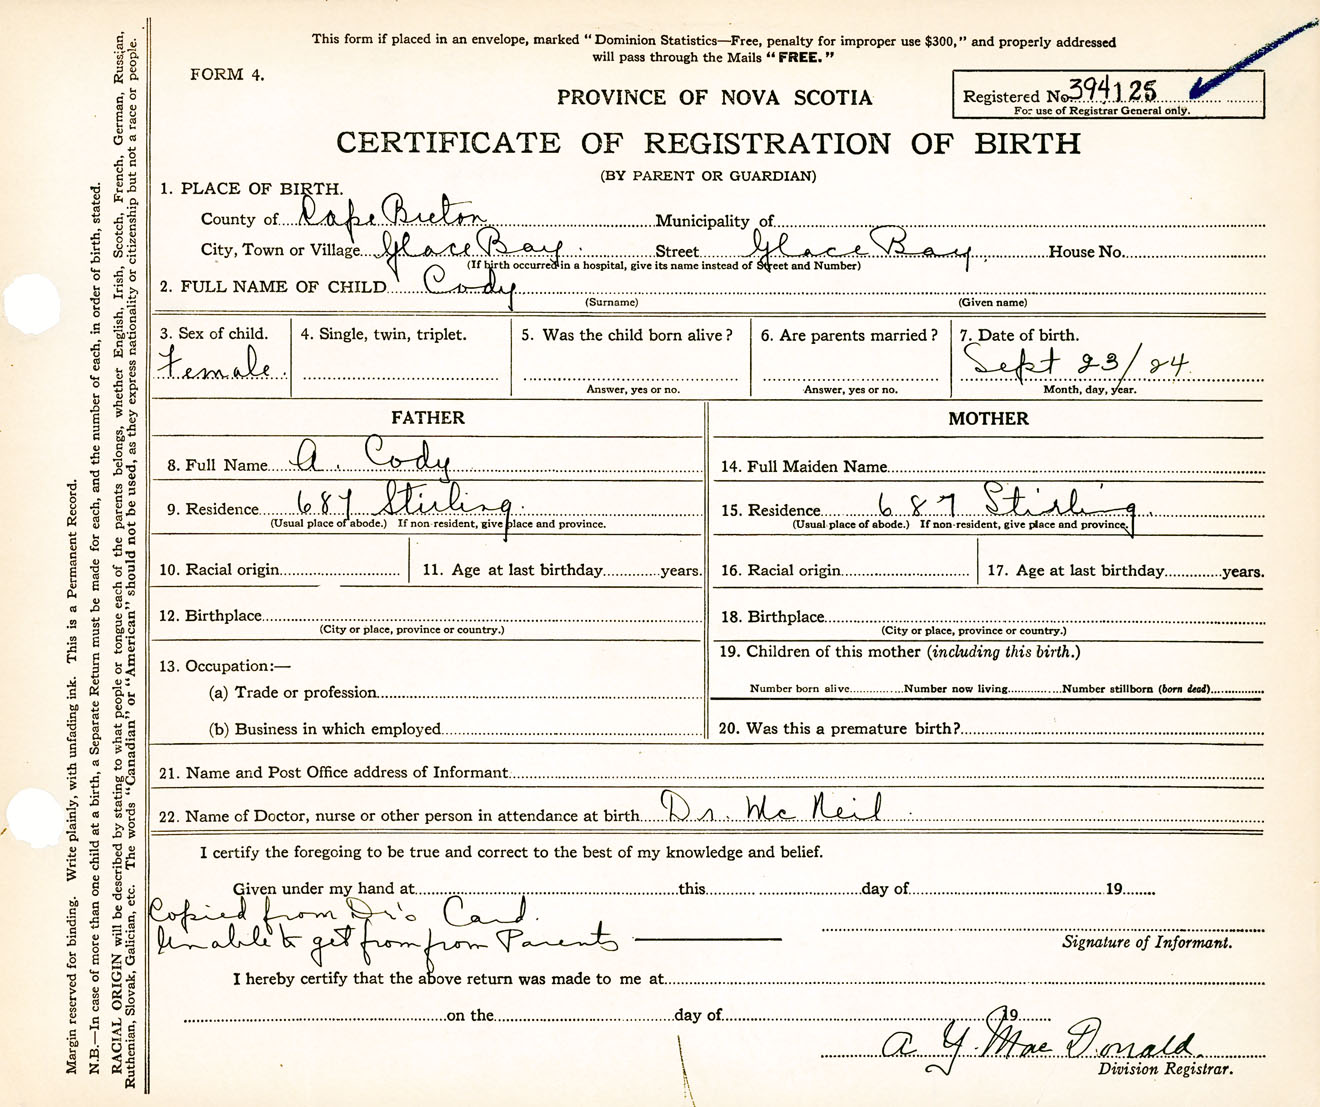 This form if placed in an envelope, marked "Dominion Statistics—Free, penalty for improper use $300," and properly addressed
will pass through the Mails "FREE."
FORM 4.
Registered No. 394125
For use of Registrar General only.
PROVINCE OF NOVA SCOTIA
CERTIFICATE OF REGISTRATION OF BIRTH
(BY PARENT OR GUARDIAN)
1. PLACE OF BIRTH.
County of Cape Breton Municipality of
City, Town or Village Glace Bay. Street Glace Bay. House No.
(If birth occurred in a hospital, give its name instead of Street and Number)
2. FULL NAME OF CHILD Cody
(Surname) (Given name)
3. Sex of child. 4. Single, twin, triplet. 5. Was the child born alive? 6. Are parents married? 7. Date of birth.
Female. Sept 23/24
Answer, yes or no. Answer, yes or no. Month, day, year.
FATHER MOTHER
8. Full Name A. Cody 14. Full Maiden Name
9. Residence 687 Stirling. 15. Residence 687 Stirling.
(Usual place of abode.) If non-resident, give place and province. (Usual place of abode.) If non-resident, give place and province.
10. Racial origin 11. Age at last birthday years. 16. Racial origin 17. Age at last birthday years.
12. Birthplace 18. Birthplace
(City or place, province or country.) (City or place, province or country.)
13. Occupation:— 19. Children of this mother (including this birth.)
(a) Trade or profession Number born alive Number now living Number stillborn (born dead)
(b) Business in which employed 20. Was this a premature birth?
21. Name and Post Office address of Informant
22. Name of Doctor, nurse or other person in attendance at birth Dr. McNeil
I certify the foregoing to be true and correct to the best of my knowledge and belief.
Given under my hand at this day of 19
Copied from Dr's Card.
Unable to get from from Parents
Signature of Informant.
I hereby certify that the above return was made to me at
on the day of 19
A Y. MacDonald.
Division Registrar.
Margin reserved for binding. Write plainly, with unfading ink. This is a Permanent Record.
N.B.—In case of more than one child at a birth, a Separate Return must be made for each, and the number of each, in order of birth, stated.
RACIAL ORIGIN will be described by stating to what people or tongue each of the parents belongs, whether English, Irish, Scotch, French, German, Russian,
Ruthenian, Slovak, Galician, etc. The words "Canadian" or "American" should not be used, as they express nationality or citizenship but not a race or people.